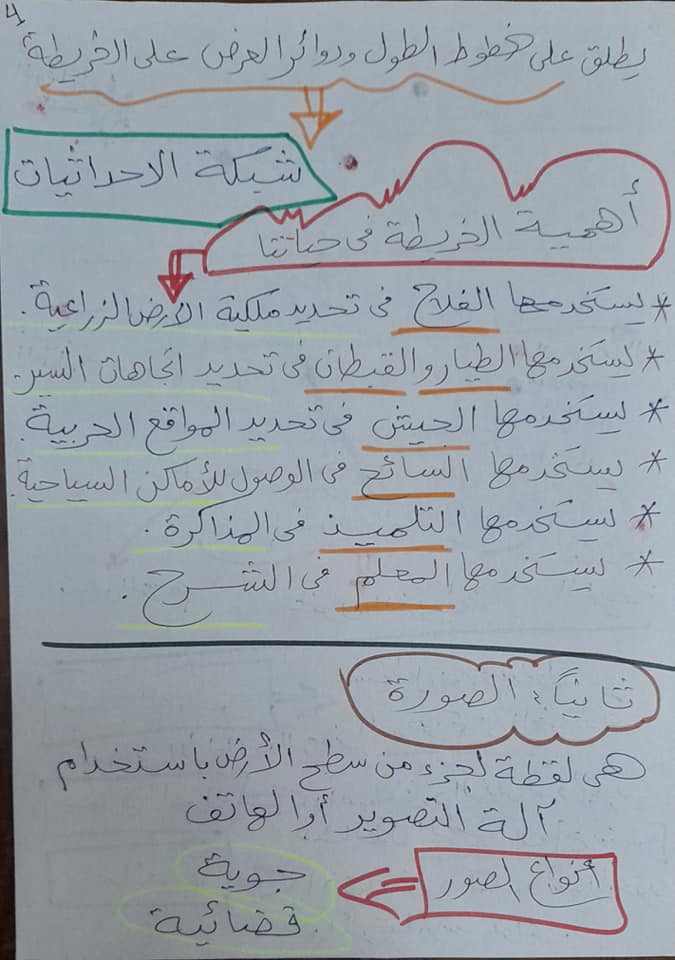 4
يطلق على خطوط الطول ودوائر العرض على الخريطة
شبكة الاحداثيات
أهمية الخريطة فى حياتنا
* يستخدمها الفلاح فى تحديد ملكية الأرض الزراعية.
* يستخدمها الطيار والقبطان فى تحديد اتجاهات السير.
* يستخدمها الجيش فى تحديد المواقع الحربية.
* يستخدمها السائح فى الوصول للأماكن السياحية.
* يستخدمها التلميذ فى المذاكرة.
* يستخدمها المعلم فى الشرح.
ثانياً: الصورة
هى لقطة لجزء من سطح الأرض باستخدام
آلة التصوير أو الهاتف
أنواع الصور
جوية
فضائية